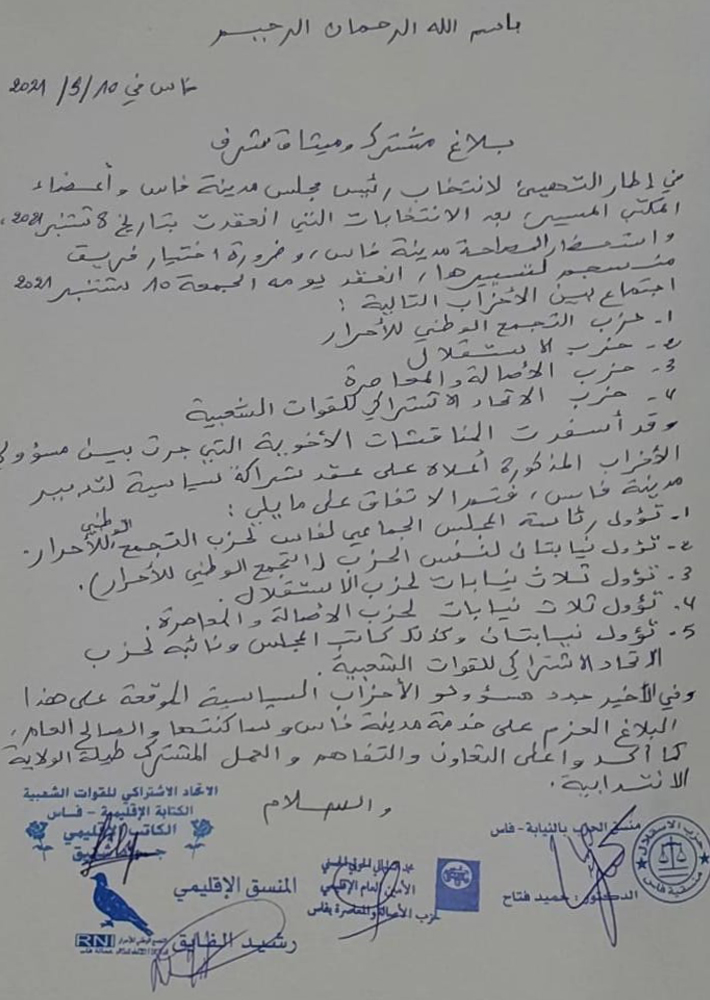 باسم الله الرحمان الرحيم
فاس في 10/9/2021
بلاغ مشترك وميثاق مشرف
في إطار التهييئ لانتخاب رئيس مجلس مدينة فاس وأعضاء
المكتب المسير، بعد الانتخابات التي انعقدت بتاريخ 8 شتنبر 2021،
واستحضارا لمصلحة مدينة فاس، وضرورة اختيار فريق
منسجم لتسييرها، انعقد يومه الجمعة 10 شتنبر 2021
اجتماع بين الأحزاب التالية :
1- حزب التجمع الوطني للأحرار
2- حزب الاستقلال
3- حزب الأصالة والمعاصرة
4- حزب الاتحاد الاشتراكي للقوات الشعبية
وقد أسفرت المناقشات الأخوية التي جرت بين مسؤولي
الأحزاب المذكورة أعلاه على عقد شراكة سياسية لتدبير
مدينة فاس، فتم الاتفاق على ما يلي :
1- تؤول رئاسة المجلس الجماعي لفاس لحزب التجمع الوطني للأحرار.
2- تؤول نيابتان لنفس الحزب (التجمع الوطني للأحرار).
3- تؤول ثلاث نيابات لحزب الاستقلال.
4- تؤول ثلاث نيابات لحزب الأصالة والمعاصرة.
5- تؤول نيابتان وكذلك كاتب المجلس ونائبه لحزب
الاتحاد الاشتراكي للقوات الشعبية.
وفي الأخير جدد مسؤولو الأحزاب السياسية الموقعة على هذا
البلاغ العزم على خدمة مدينة فاس وساكنتها والصالح العام،
كما أكدوا على التعاون والتفاهم والعمل المشترك طيلة الولاية
الانتدابية.
والسلام
الاتحاد الاشتراكي للقوات الشعبية
الكتابة الإقليمية - فاس
الكاتب الإقليمي
منسق الحزب بالنيابة - فاس
الدكتور : حميد فتاح
حزب الاستقلال
الأمين العام الإقليمي
حزب الأصالة والمعاصرة بفاس
المنسق الإقليمي
رشيد الفايق
RNI